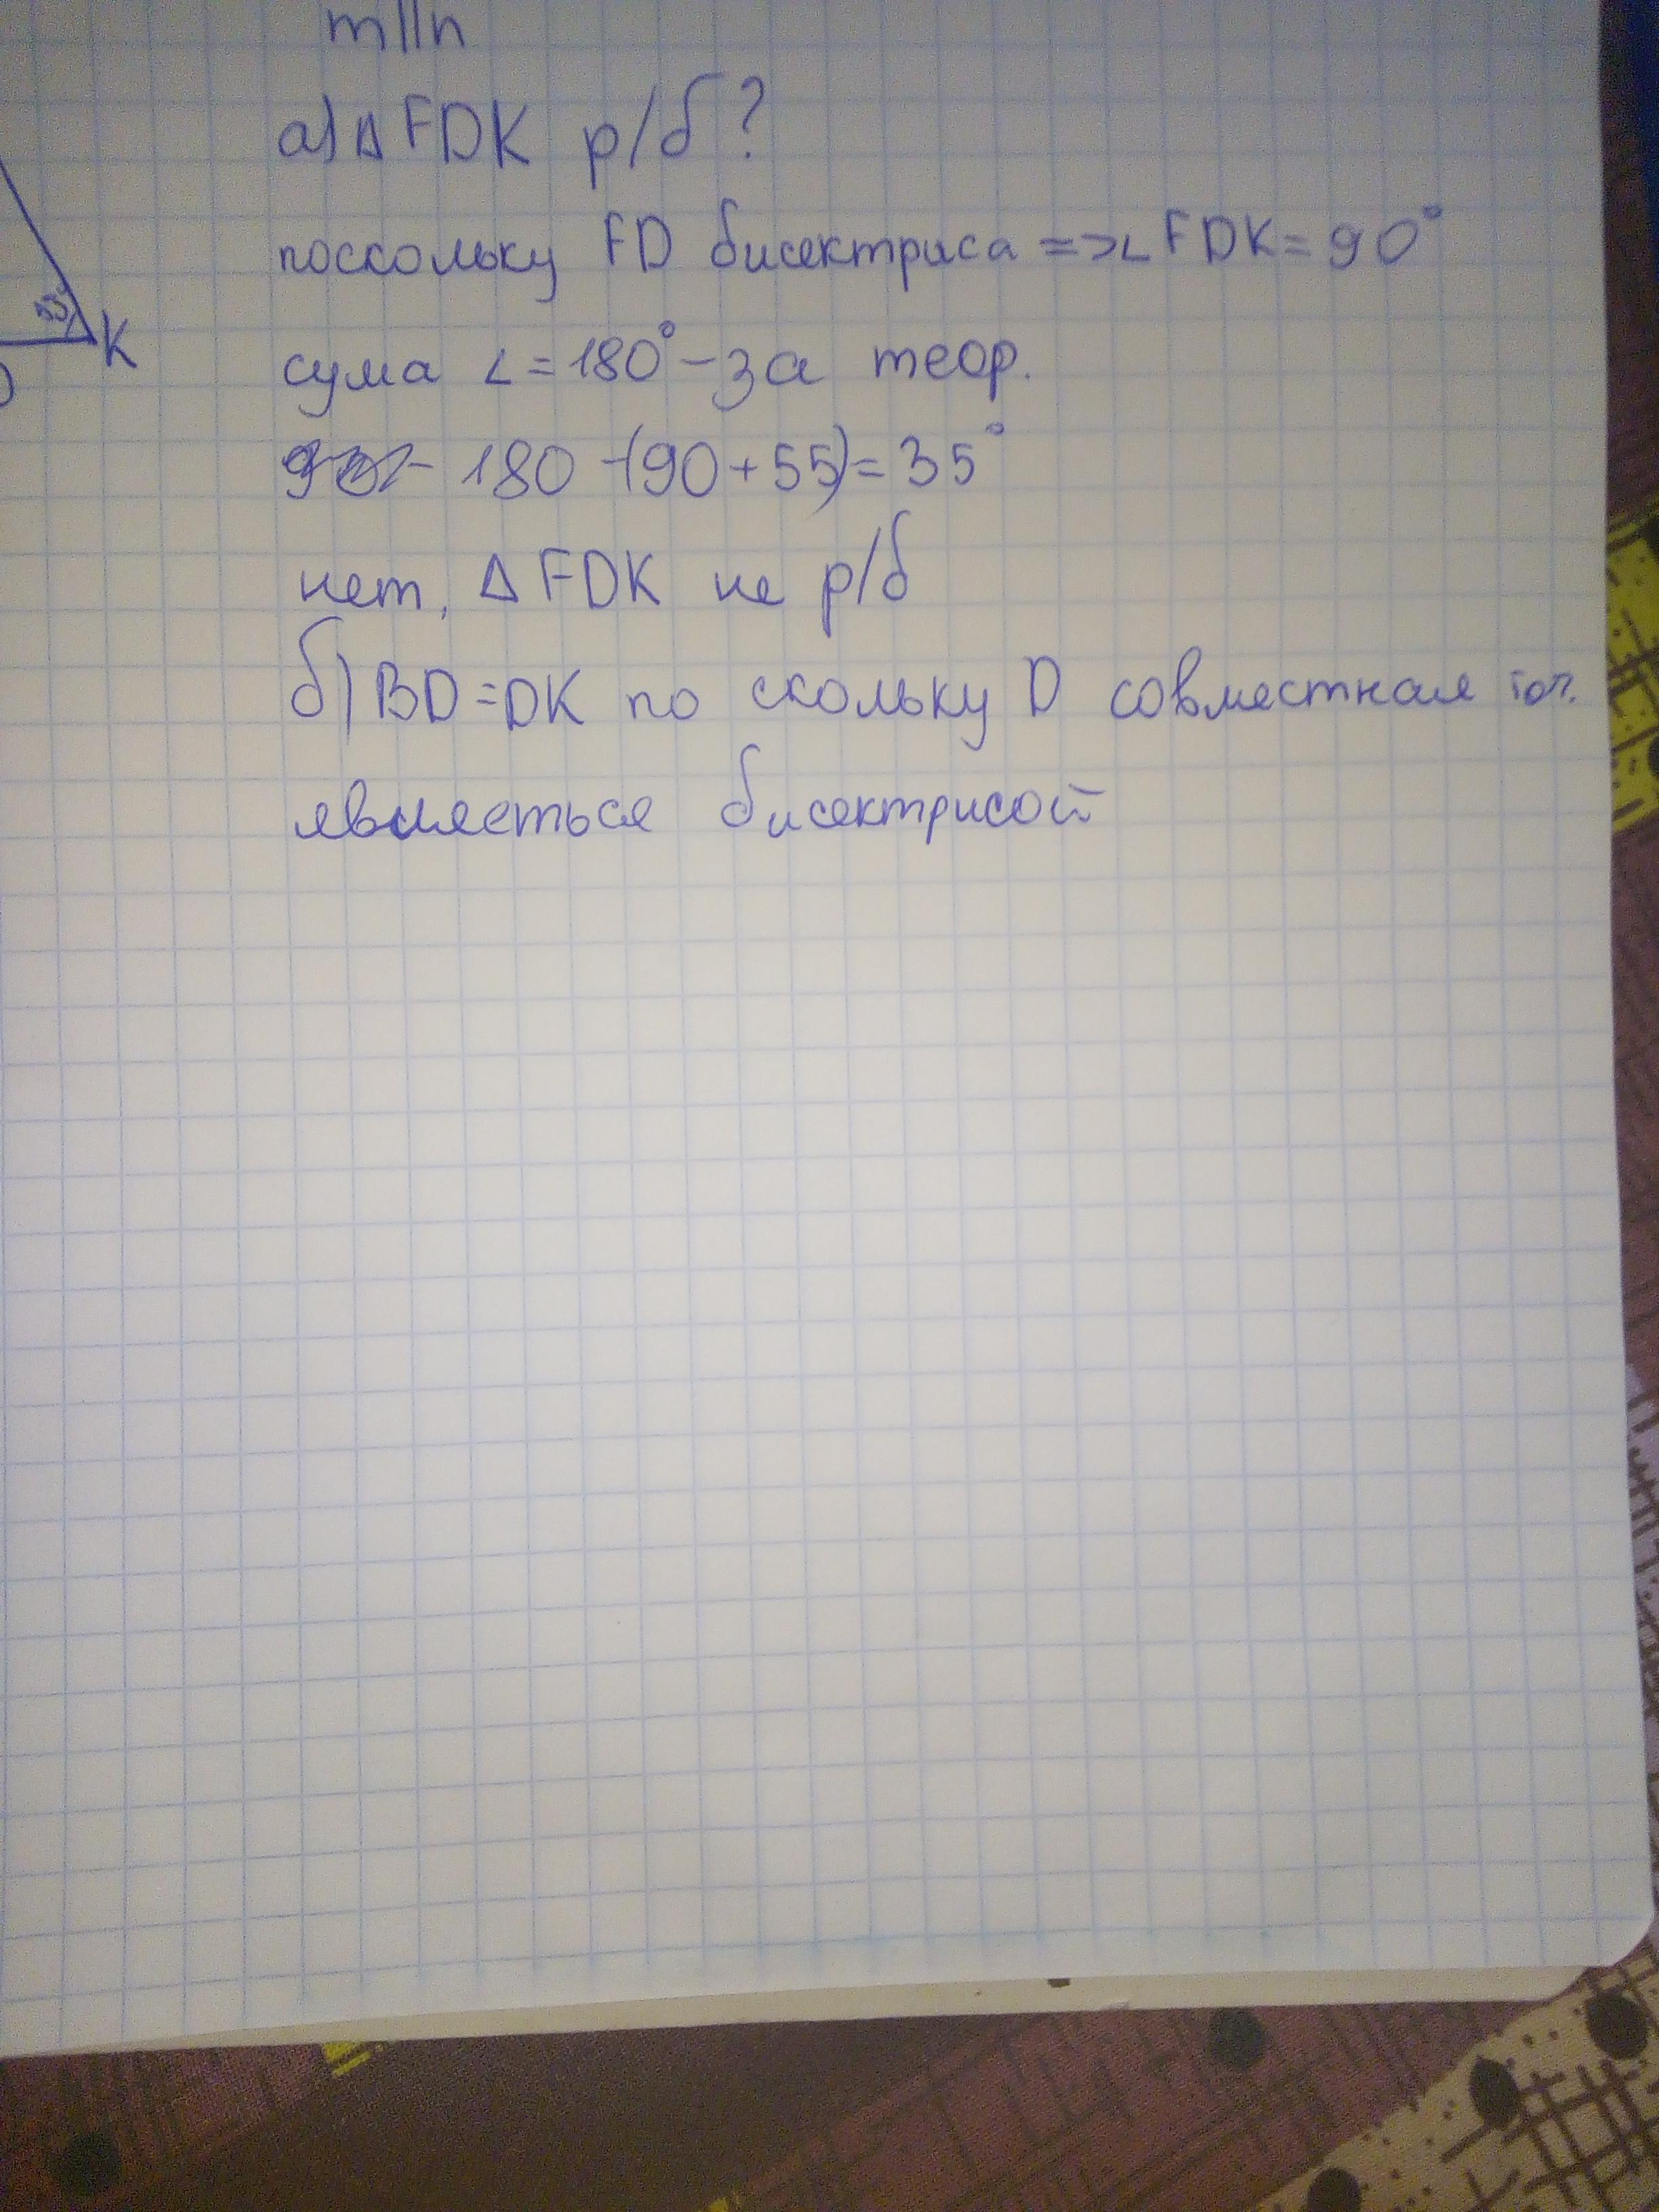 m||n
а) Δ FDK р/б ?
поскольку FD бисектриса => ∠ FDK = 90°
сума ∠ = 180° - за теор.
55°
K
180 - (90 + 55) = 35°
нет, Δ FDK не р/б
б) BD = DK по скольку D совместная точ.
явлееться бисектрисой